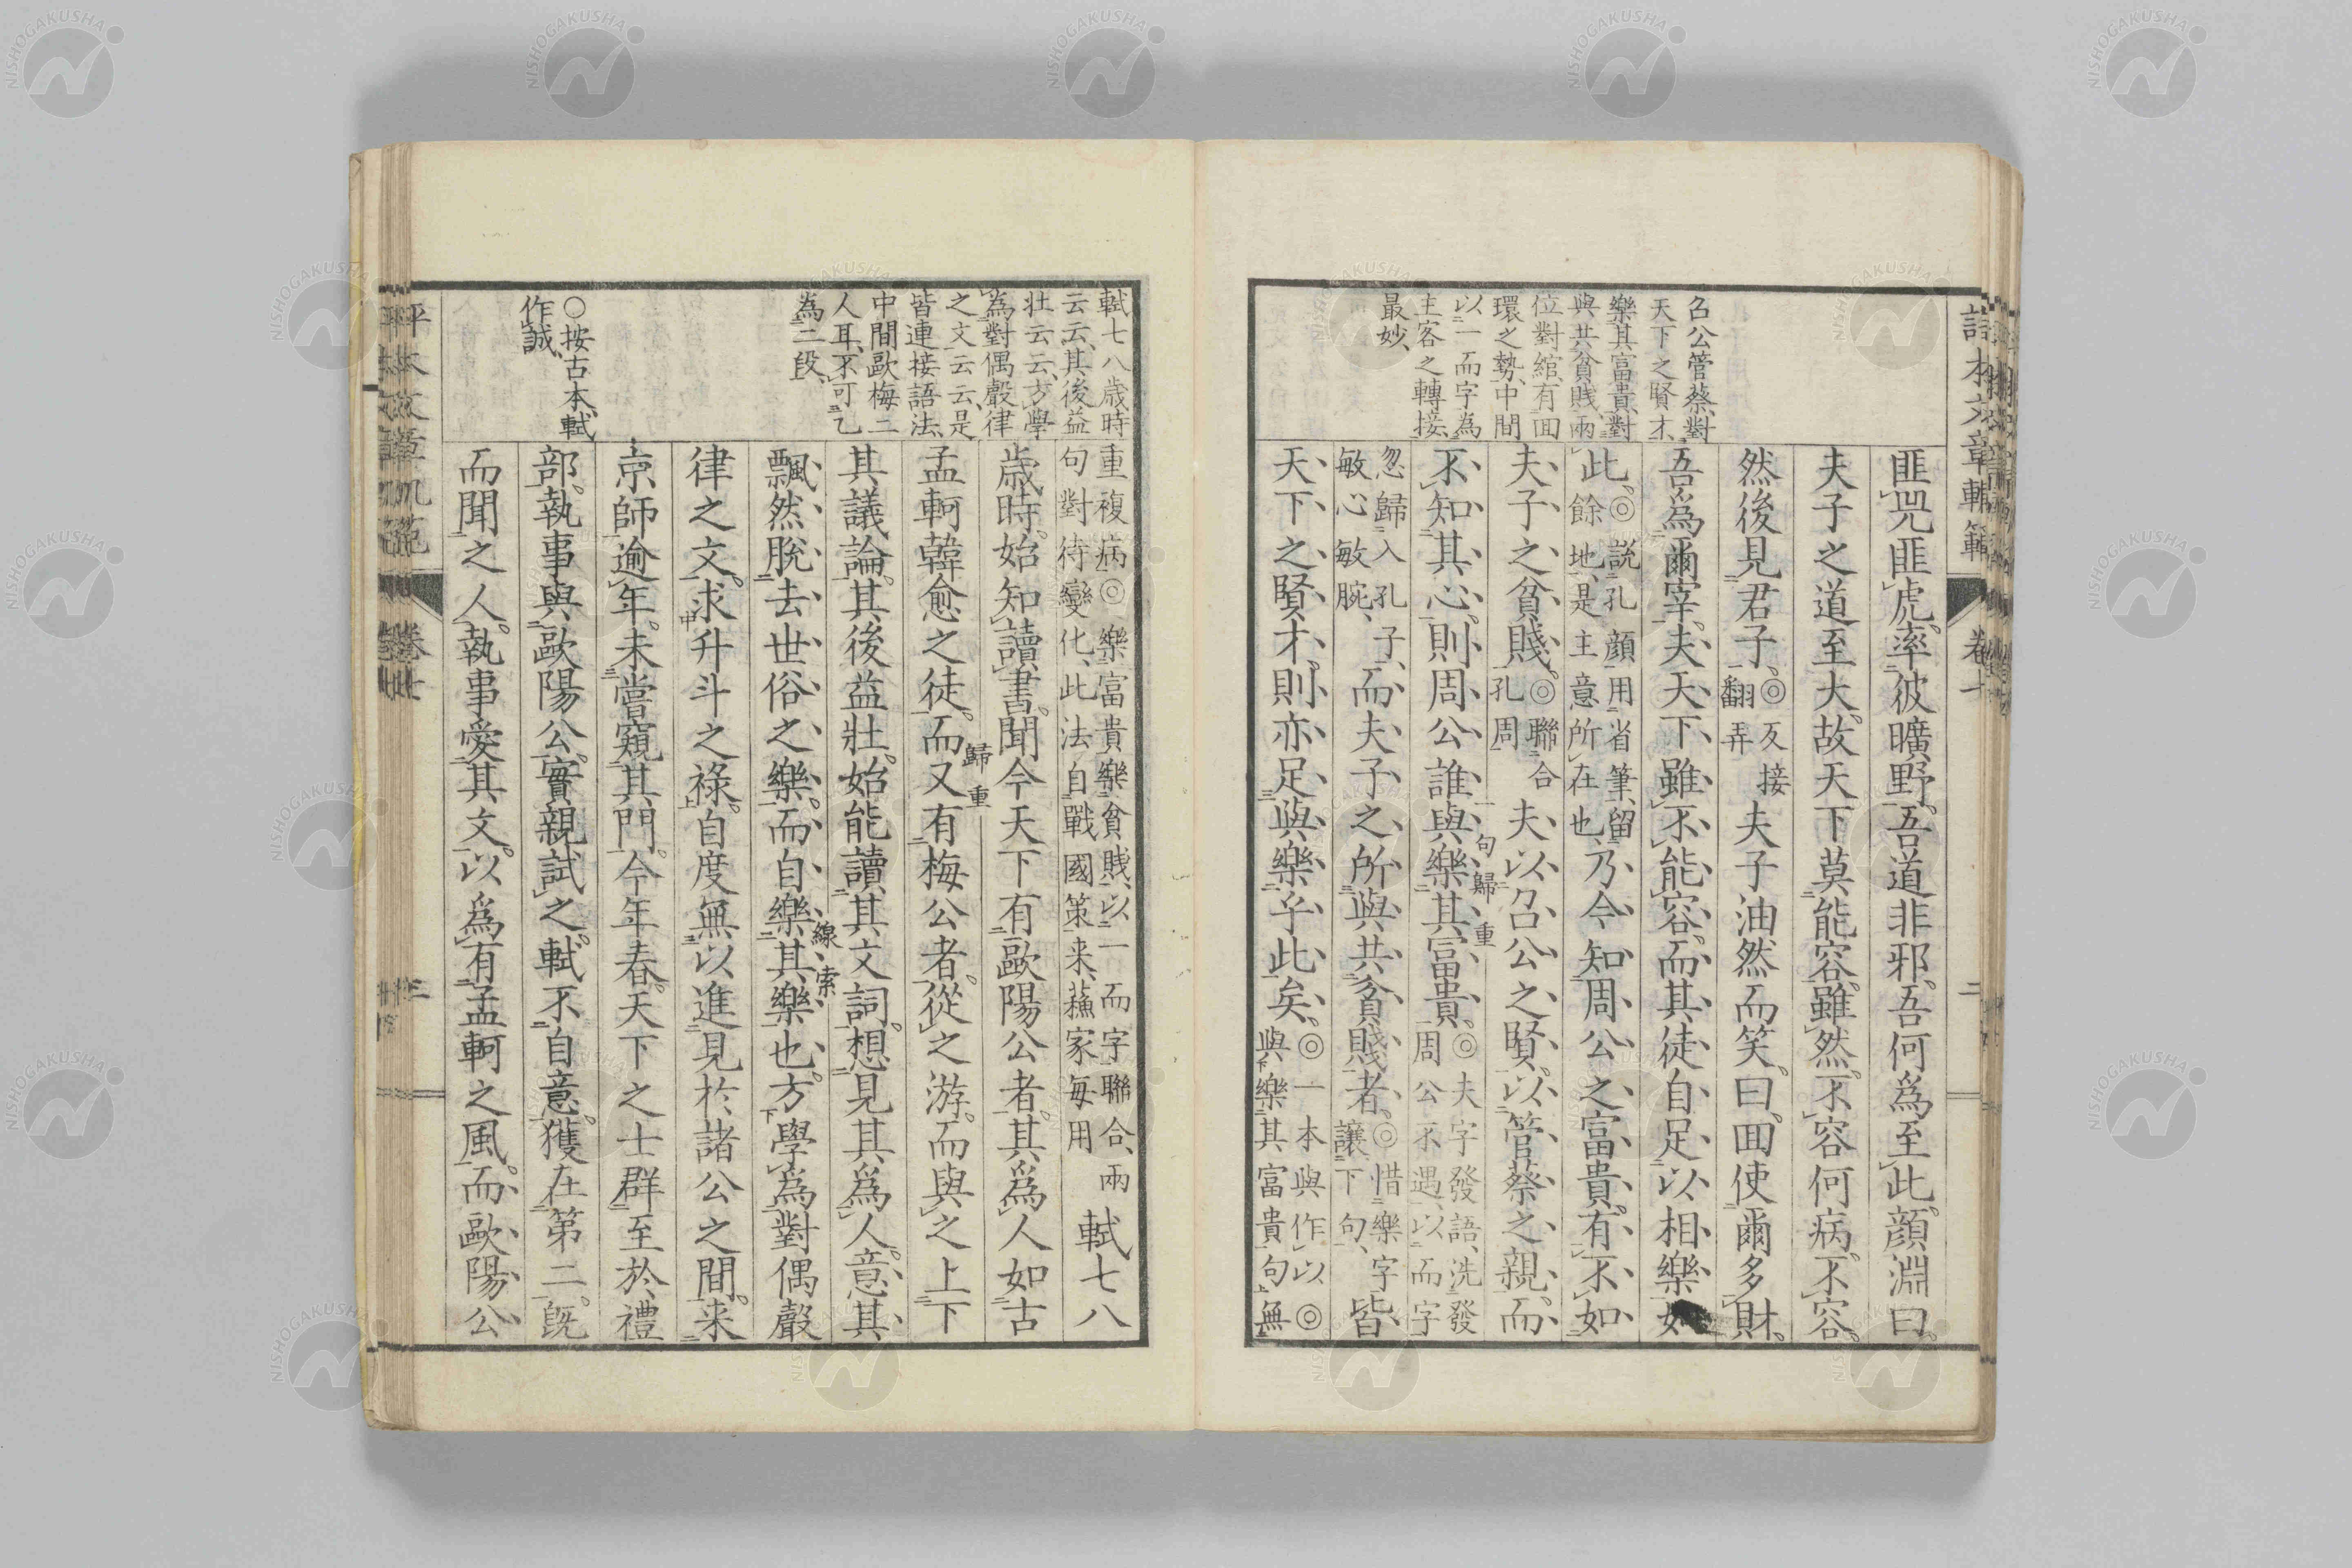 匪兕匪虎。率彼曠野。吾道非邪。吾何爲至此。顔淵曰。
夫子之道至大。故天下莫能容。雖然。不容何病。不容。
然後見君子。◎反接翻弄夫子油然而笑。曰。回使爾多財。
吾爲爾宰。夫天下雖不能容。而其徒自足以相樂
此。◎説孔顔用省筆、留餘地、是主意所在也、乃今知周公之富貴。有不如
夫子之貧賤。◎聯合孔周夫以召公之賢。以管蔡之親。而
不知其心。則周公誰與樂其富貴。◎夫字發語、洗發周公不遇、以而字
忽歸入孔子、敏心敏腕、而夫子之所與共貧賤者。◎惜樂字讓下句、皆
天下之賢才。則亦足與樂乎此矣。◎一本與作以◎與樂其富貴句無
句歸重
召公管蔡、對
天下之賢才、
樂其富貴、對
與共貧賤、兩
位對綰、有面
環之勢、中間
以一而字為
主客之轉接、
最妙、
重複病◎樂富貴樂貧賤、以一而字聯合、兩句對待變化、此法自戰國策来、蘓家毎用軾七八
歳時。始知讀書。聞今天下有歐陽公者。其爲人如古
孟軻韓愈之徒。而又有梅公者。從之游。而與之上下
其議論。其後益壯。始能讀其文詞。想見其爲人。意其
飄然脫去世俗之樂。而自樂其樂也。方學爲對偶聲
律之文。求升斗之祿。自度無以進見於諸公之間。来
京師逾年。未嘗窺其門。今年春。天下之士群至於禮
部。執事與歐陽公。實親試之。軾不自意。獲在第二。既
而聞之人。執事愛其文。以爲有孟軻之風。而歐陽公
歸重
線索
軾七八歳時
云云、其後益
壮云云、方學
為對偶聲律
之文云云、是
皆連接語法、
中間歐梅二
人耳、不可乙
為二段、
○按古本、軾
作誠、